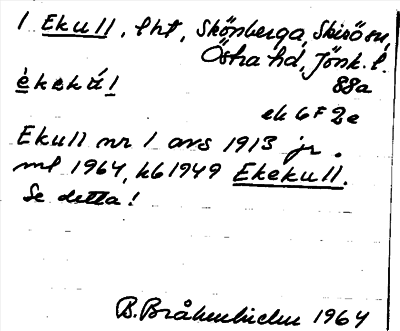 1 Ekull, lht, Skönberga, Skirö sn,
Östra hd, Jönk. l.
èkekúl 88a
ek 6 F 2e
Ekull nr 1 avs 1913 jr.
ml 1964, hb 1949 Ekekull.
Se detta!
B. 1964